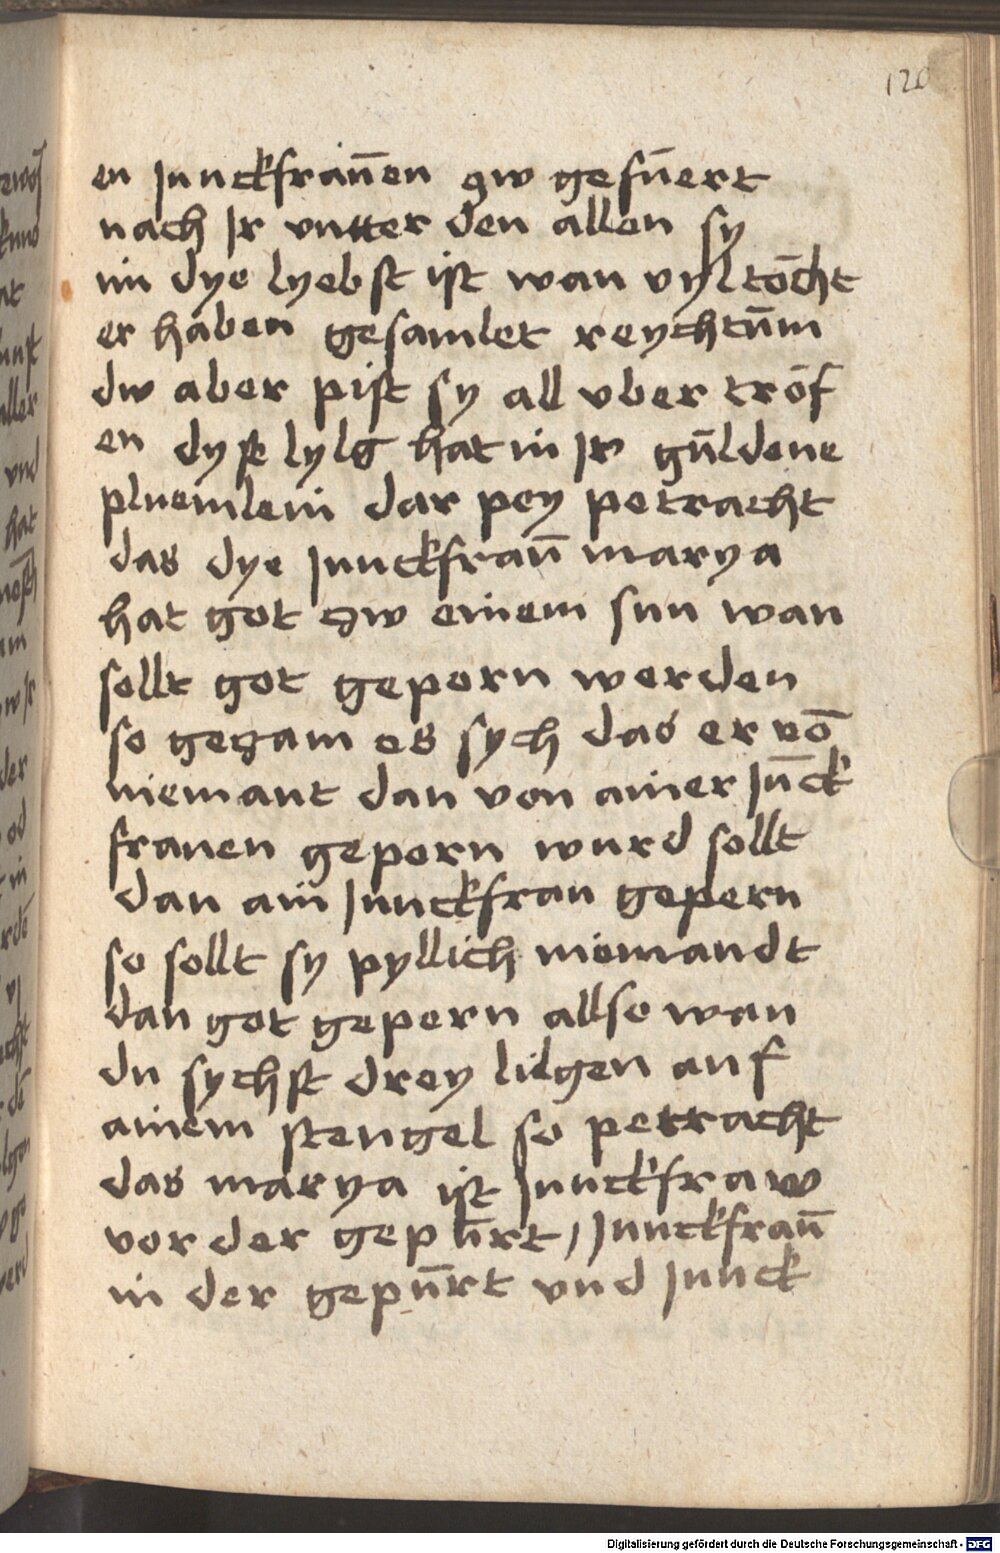 120
en Junckfraūen zw gefūert
nach Jr vntter den allen sy
im dye lyebst ist wan vyl tōcht
er haben gesamlet reychtūm
dw aber pist sy all vber trōf
en dyse lylg hat in Jr gūldene
pluemlein dar pey petracht
das dye Junckfraū marya
hat got zw einem sun wan
sollt got geporn werden
so gezam es sych das er vō
niemant dan von ainer Jūnck
frauen geporn wurd sollt
dan ain Junckfrau gepern
so sollt sy pyllich niemandt
dan got gepern allso wan
du sychst drey lilgen auf
ainem stengel so petracht
das marya ist Junckfraw
vor der gepūrt / Junckfraū
in der gepūrt vnd Junck
Digitalisierung gefördert durch die Deutsche Forschungsgemeinschaft - DFG